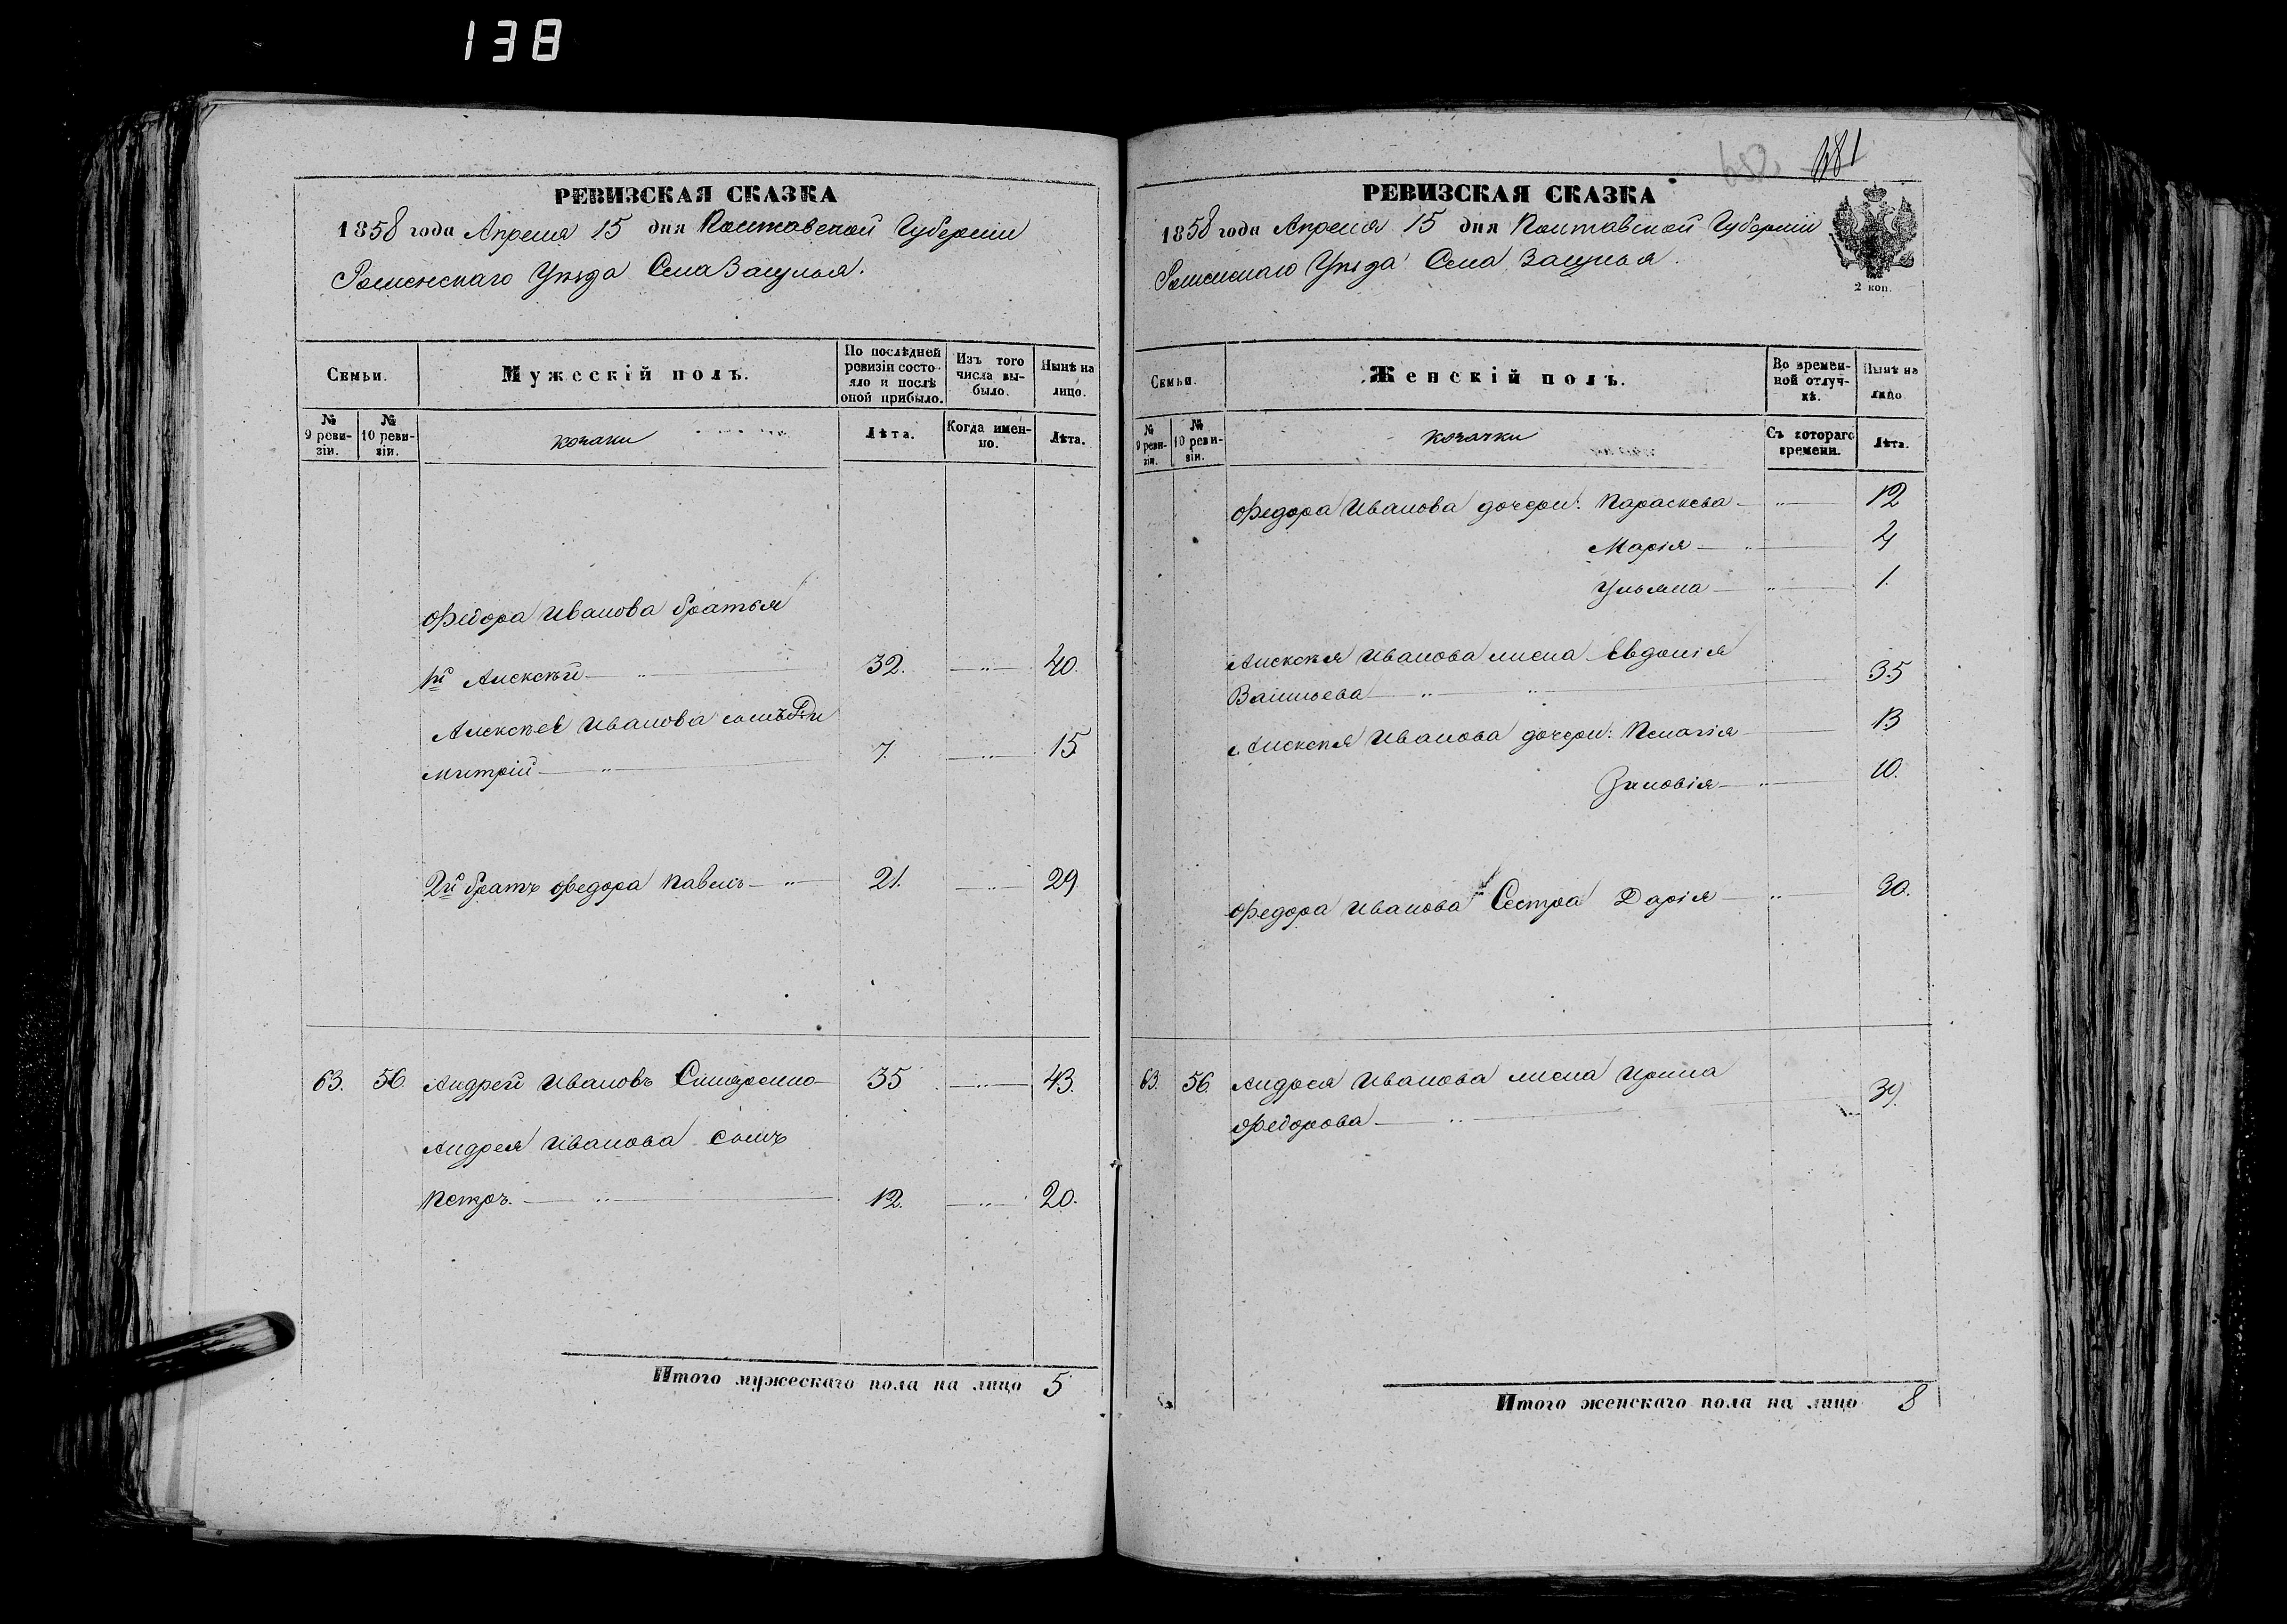 138
РЕВИЗСКАЯ СКАЗКА
1858 года Апреля 15 дня Полтавской Губерніи
Роменскаго Уѣзда Села Засулья.
Семьи.
Мужескій полъ.
По послѣдней ревизіи состояло и послѣ оной прибыло.
Изъ того числа выбыло.
Нынѣ на лицо.
№ 9 ревизіи.
№ 10 ревизіи.
козаки
Лѣта.
Когда именно.
Лѣта.
Федора Иванова братья
1й Алексѣй 32. 40.
Алексѣя Иванова сынъ Ди
митрій 7. 15
2й братъ Федора Павелъ 21. 29
63. 56. Андрей Ивановъ 35 43.
Андрея Иванова сынъ
Петръ. 12. 20.
Итого мужескаго пола на лицо 5
681
РЕВИЗСКАЯ СКАЗКА
1858 года Апреля 15 дня Полтавской Губерніи
Роменскаго Уѣзда Села Засулья.
2 коп.
Семьи.
Женскій полъ.
Во временной отлучкѣ.
Нынѣ на лицо
№ 9 ревизіи.
№ 10 ревизіи.
козачки
Съ котораго времени.
Лѣта.
Федора Иванова дочери: Параскева 12
Марія 4
Ульяна 1.
Алексѣя Иванова жена Евдокія
Васильева 35
Алексѣя Иванова дочери: Пелагія 13
Зиновія 10.
Федора Иванова Сестра Дарія 30.
63. 56. Андрея Иванова жена Ирина
Федорова 39.
Итого женскаго пола на лицо 8